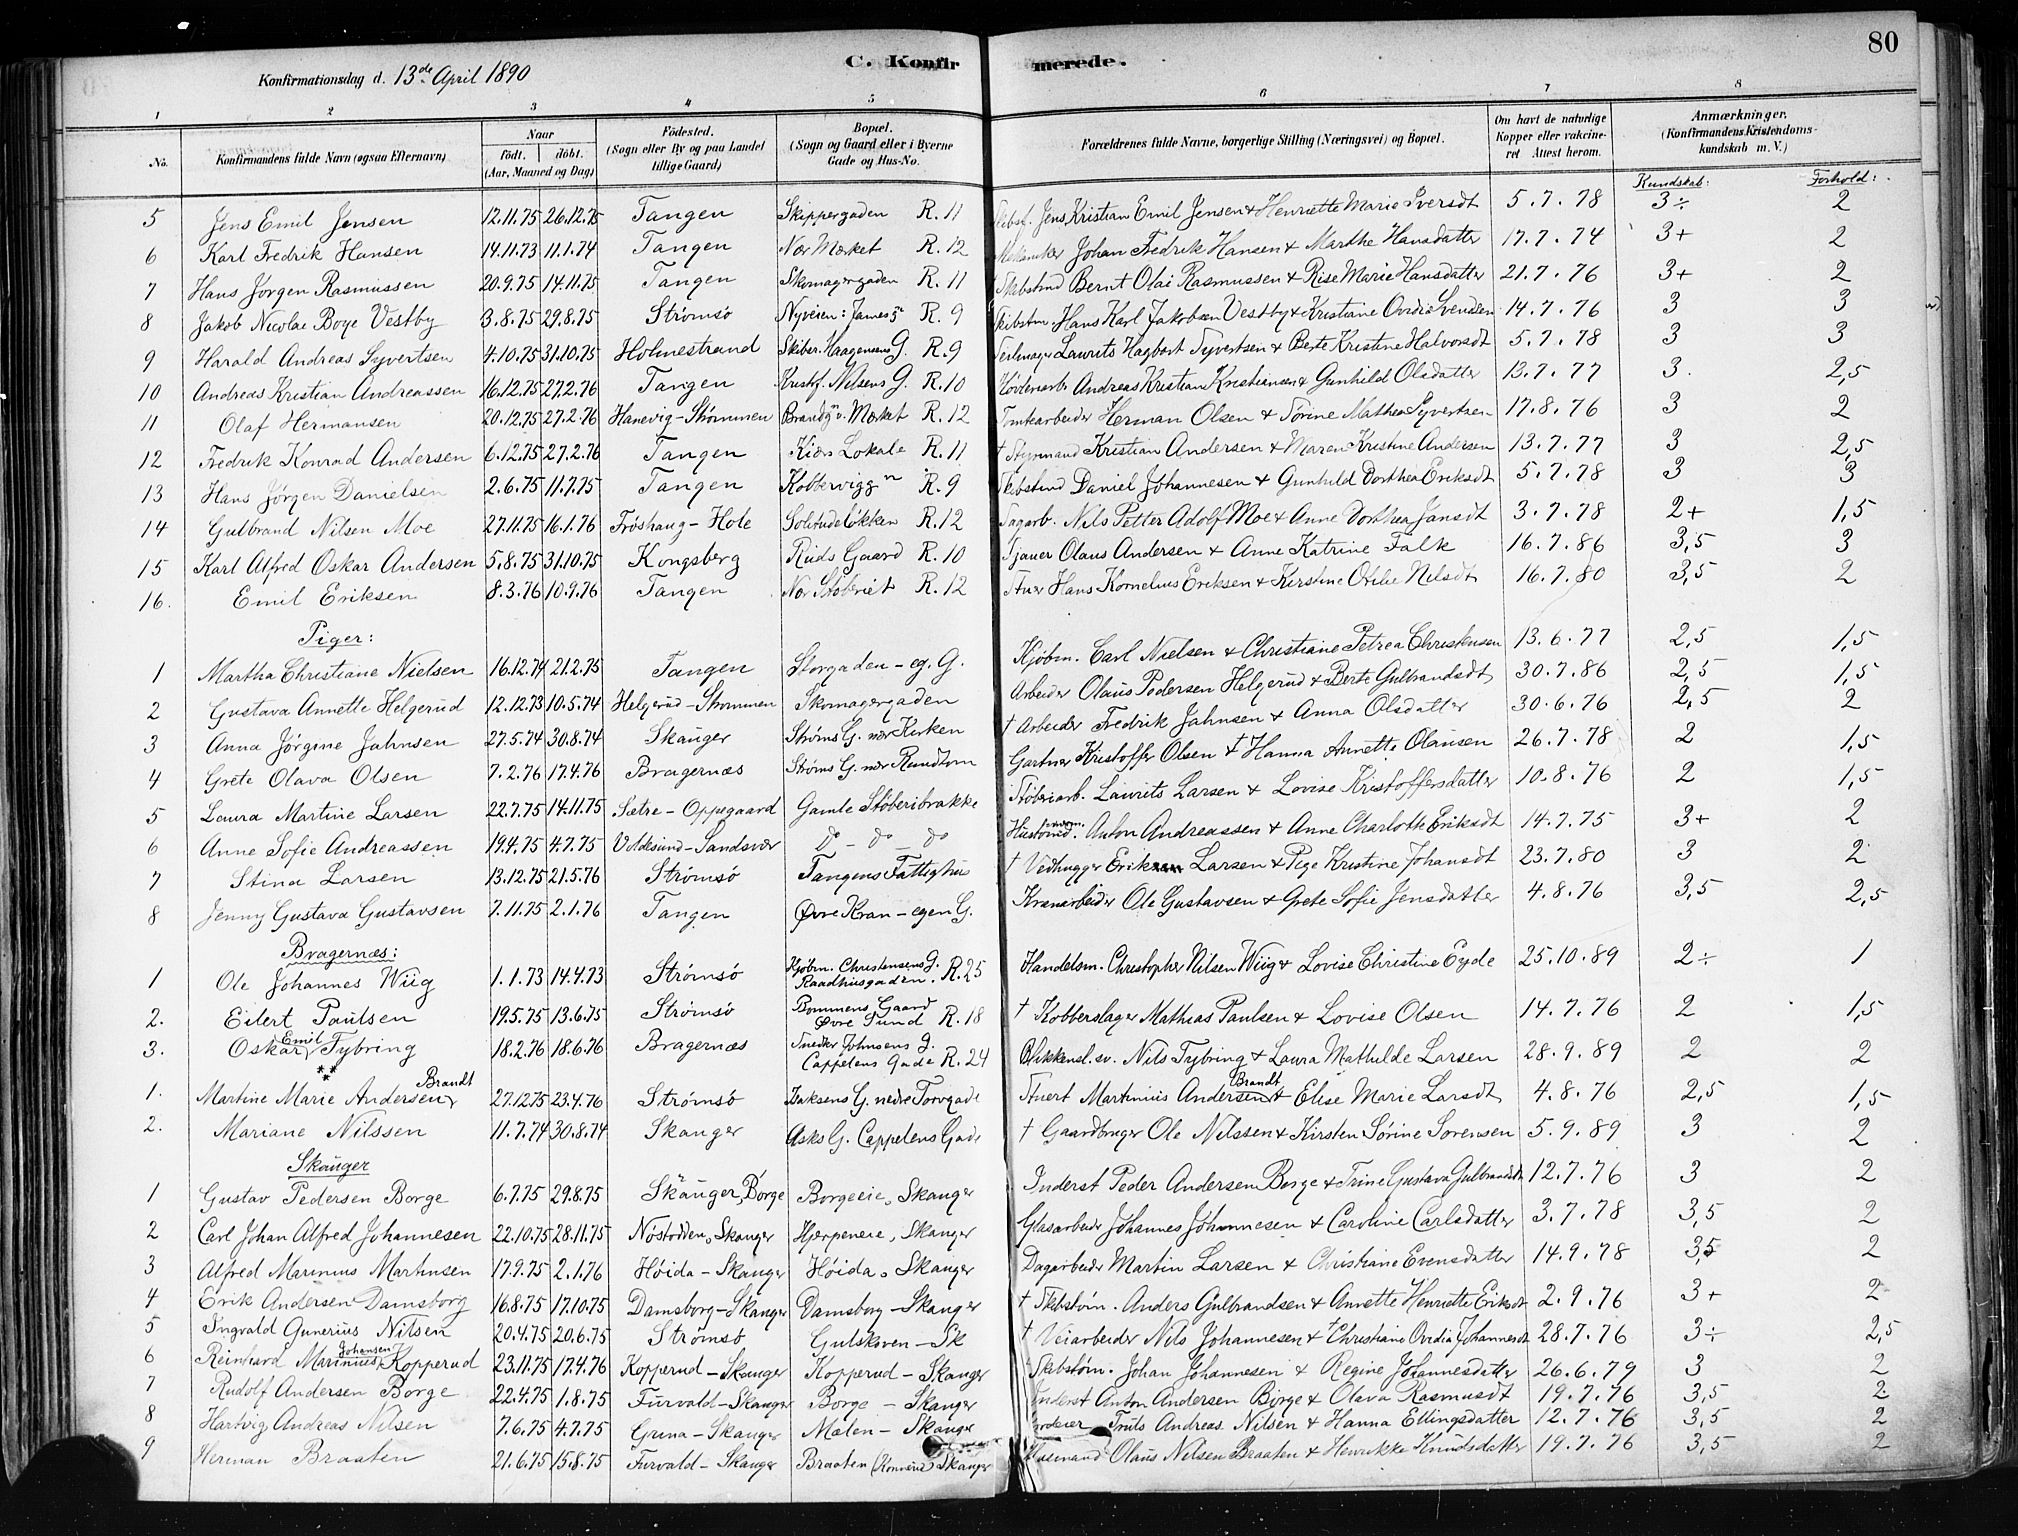 80
C. Konfirmerede.
Konfirmationsdag d. 13de April 1890
1 2 3 4 5 6 7 8
No. Konfirmandens fulde Navn (ogsaa Efternavn) Naar födt. döbt. (Aar, Maaned og Dag) Födested. (Sogn eller By og paa Landet tillige Gaard) Bopæl. (Sogn og Gaard eller i Byerne Gade og Hus-No. Forældrenes fulde Navne, borgerlige Stilling (Næringsvei) og Bopæl. Om havt de naturlige Kopper eller vakcineret. Attest herom. Anmærkninger. (Konfirmandens Kristendomskundskab m. V.)
Kundskab: Forhold:
5 Jens Emil Jensen 12.11.75 26.12.75 Tangen Skippergaden R. 11 Jens Kristian Emil Jensen & Henriette Marie Iversdt 5.7.78 3÷ 2
6 Karl Fredrik Hansen 14.11.73 11.1.74 Tangen Nær Mærket R. 12 Johan Fredrik Hansen & Marthe Hansdatter 17.7.74 3+ 2
7 Hans Jørgen Rasmussen 20.9.75 14.11.75 Tangen Skomagergaden R. 11 Bernt Olai Rasmussen & Rise Marie Hansdatter 21.7.76 3+ 2
8 Jakob Nicolae Boye Vestby 3.8.75 29.8.75 Strømsø Nyveien: R. 9 Skibstm. Hans Karl Jakobsen Vestby & Kristiane Ovidia Svendsen 14.7.76 3 3
9 Harald Andreas Syvertsen 4.10.75 31.10.75 Holmestrand Skiber. Haagensens G. R. 9 Seilmager Laurits Hagbart Syvertsen & Berte Kristine Halvorsdt 5.7.78 3 3
10 Andreas Kristian Andreassen 16.12.75 27.2.76 Tangen Kristf. Nilsens G. R. 10 Andreas Kristian Kristiansen & Gunhild Olsdatter 13.7.77 3. 2,5
11 Olaf Hermansen 20.12.75 27.2.76 Hanevig-Strømmen Brandgn v. Mærket R. 12 Tomtearbeider Herman Olsen & Tørine Mathea Syvertsen 17.8.76 3 2
12 Fredrik Konrad Andersen 6.12.75 27.2.76 Tangen Kiærs Lokale R. 11 † Styrmand Kristian Andersen & Maren Kristine Andersen 13.7.77 3 2,5
13 Hans Jørgen Danielsen 2.6.75 11.7.75 Tangen Kobbervign R. 9 Daniel Johannesen & Gunhild Dorthea Eriksdt 5.7.78 3 3
14 Gulbrand Nilsen Moe 27.11.75 16.1.76 Frøshaug-Hole Solitudeløkken R. 12 Sagarb. Nils Petter Adolf Moe & Anne Dorthea Jansdt 3.7.78 2+ 1,5
15 Karl Alfred Oskar Andersen 5.8.75 31.10.75 Kongsberg Ruds Gaard R. 10 Tjauer Olaus Andersen & Anne Katrine Falk 16.7.86 3,5 3
16. Emil Eriksen 8.3.76 10.9.76 Tangen Nær Støberiet R. 12 Stuer Hans Kornelius Eriksen & Kirstine Otilie Nilsdt 16.7.80 3,5 2
Piger:
1 Martha Christiane Nielsen 16.12.74 21.2.75 Tangen Storgaden - eg. G. Kjøbm. Carl Nielsen & Christiane Petrea Christensen 13.6.77 2,5 1,5
2 Gustava Annette Helgerud 12.12.73 10.5.74 Helgerud-Strømmen Skomagergaden Arbeider Olaus Pedersen Helgerud & Berte Gulbrandsdt 30.7.86 2,5 1,5
3 Anna Jørgine Jahnsen 27.5.74 30.8.74 Skauger Strøms G. nær Kirken † Arbeider Fredrik Jahnsen & Anna Olsdatter 30.6.76 2,5 2
4 Grete Olava Olsen 7.2.76 17.4.76 Bragernæs Strøms G. nær Rundtom Gartner Kristoffer Olsen & † Hanna Annette Olausen 26.7.78 2 1,5
5 Laura Martine Larsen 22.7.75 14.11.75 Sætre-Oppegaard Gamle Støberibrakke Støberiarb. Laurits Larsen & Lovise Kristoffersdatter 10.8.76 2 1,5
6 Anne Sofie Andreassen 19.4.75 4.7.75 -Sandsvær do - do - do Anton Andreassen & Anne Charlotte Eriksdt 14.7.75 3+ 2
7 Stina Larsen 13.12.75 21.5.76 Strømsø Tangens Fattighus † Vedhugger Erik Larsen & Pige Kristine Johansdt 23.7.80 3 2
8 Jenny Gustava Gustavsen 7.11.75 2.1.76 Tangen Øvre Kran - egen G. Kranarbeider Ole Gustavsen & Grete Sofie Jensdatter 4.8.76 3,5 2,5
Bragernæs:
1 Ole Johannes Wiig 1.1.73 14.4.73 Strømsø Kjøbm. Christensens G. Raadhusgaden. R. 25 Handelsm. Christopher Nilsen Wiig & Lovise Christine Eyde 25.10.89 2÷ 1
2. Eilert Paulsen 19.5.75 13.6.75 Strømsø Bommens Gaard Øvre Sund R. 18 † Kobberslager Mathias Paulsen & Lovise Olsen 14.7.76 2 1,5
3. Oskar Emil Tybring 18.2.76 18.6.76 Bragernæs Snedker Johnsens G. Cappelens Gade R. 24 Blikkensl. sv. Nils Tybring & Laura Mathilde Larsen 28.9.89 2 2
1. Martine Marie Andersen Brandt 27.12.75 23.4.76 Strømsø Isaksens G. nedre Torvgade Stuert Martinius Andersen Brandt & Elise Marie Larsdt 4.8.76 2,5 1,5
2. Mariane Nilssen 11.7.74 30.8.74 Skauger Asks G. Cappelens Gade † Gaardbruger Ole Nilssen & Kirsten Sørine Sørensen 5.9.89 3 2
Skauger
1 Gustav Pedersen Borge 6.7.75 29.8.75 Skauger, Borge Borgeeie, Skauger Inderst Peder Andersen Borge & Trine Gustava Gulbrandsdt 12.7.76 3 2
2 Carl Johan Alfred Johannesen 22.10.75 28.11.75 Nøstodden, Skauger Hjerpeneie, Skauger Glasarbeider Johannes Johannesen & Caroline Carlsdatter 3.7.78 3,5 2
3 Alfred Marinius Martinsen 17.9.75 2.1.76 Høida - Skauger Høida, Skauger Dagarbeider Martin Larsen & Christiane Evensdatter 14.9.78 3,5 2
4 Erik Andersen Damsborg 16.8.75 17.10.75 Damsborg - Skauger Damsborg - Skauger † Skibstøm. Anders Gulbrandsen & Annette Henriette Eriksdt 2.9.76 3+ 2
5 Ingvald Gunerius Nilsen 20.4.75 20.6.75 Strømsø Gulskoven - Sk † Veiarbeider Nils Johannesen & † Christiane Ovidia Johannesdt 28.7.76 3÷ 2,5
6 Reinhard Marinius Johansen Kopperud 23.11.75 17.4.76 Kopperud - Skauger Kopperud - Skauger Skibstøm. Johan Johannesen & Regine Johannesdatter 26.6.79 3 2
7 Rudolf Andersen Borge 22.4.75 1.8.75 Furvald - Skauger Borge - Skauger Inderst Anton Andersen Borge & Olava Rasmusdt 19.7.76 3,5 2
8 Hartvig Andreas Nilsen 7.6.75 4.7.75 Gruna - Skauger Mølen - Skauger Truls Andreas Nilsen & Hanna Ellingsdatter 12.7.76 3,5 2
9 Herman Braaten 21.6.75 15.8.75 Furvald - Skauger Braaten Skauger Husmand Olaus Nilsen Braaten & Henrikke Knudsdatter 19.7.76 3,5 2